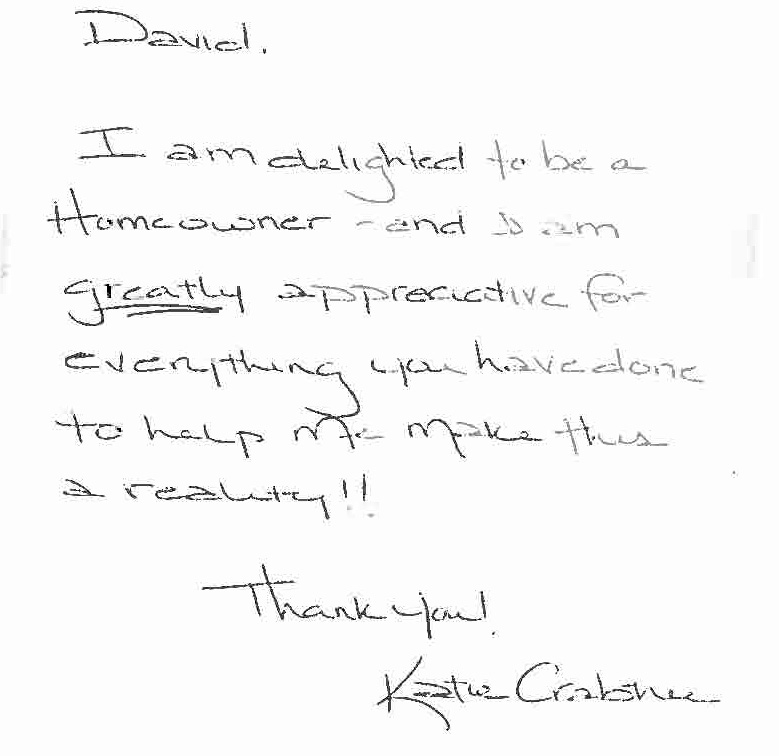 David,
I am delighted to be a
Homeowner - and I am
greatly appreciative for
everything you have done
to help me make this
a reality!!
Thank you!
Katie